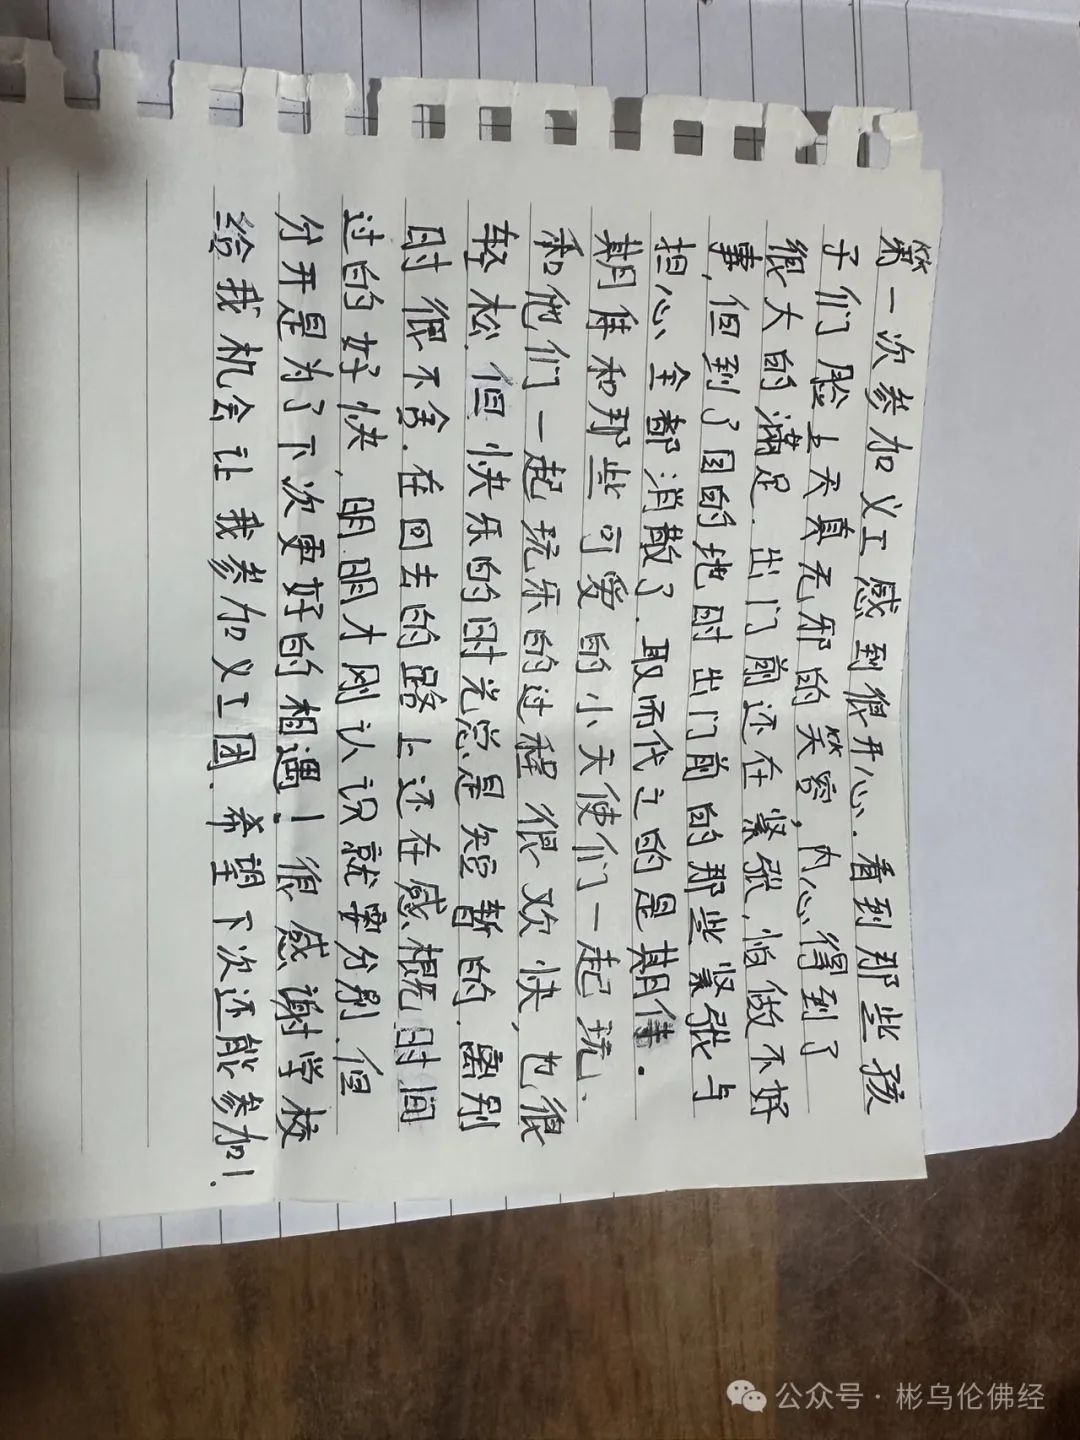 第一次参加义工感到很开心.看到那些孩
子们脸上天真无邪的笑容,内心得到了
很大的满足.出门前还在紧张,怕做不好
事,但到了目的地时出门前的那些紧张与
担心全都消散了.取而代之的是期待.
期待和那些可爱的小天使们一起玩、
和他们一起玩乐的过程很欢快,也很
轻松.但快乐的时光总是短暂的.离别
时很不舍.在回去的路上还在感概时间
过的好快,明明才刚认识就要分别.但
分开是为了下次更好的相遇!很感谢学校
给我机会让我参加义工团.希望下次还能参加!.
公众号·彬乌伦佛经